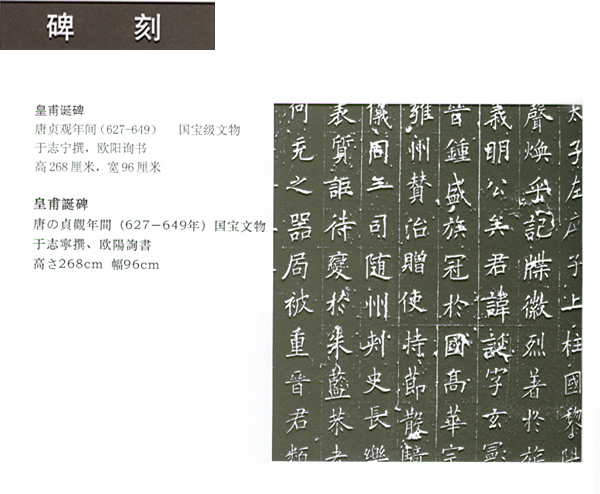 碑 刻
皇甫诞碑
唐贞观年间（627-649） 国宝级文物
于志宁撰，欧阳询书
高268厘米，宽96厘米
皇甫誕碑
唐の貞觀年間（627－649年）国宝文物
于志寧撰、欧陽詢書
高さ268cm 幅96cm
太子左庶子上柱國黎陽
聲煥乎記牒徽烈著於旂
義明公矣君諱誕字玄憲
晉鍾盛族冠於國高華宗
雍州贊治贈使持節散騎
儀同三司随州刺史長樂
表質詎待變於朱藍恭孝
何充之器局被重晉君類